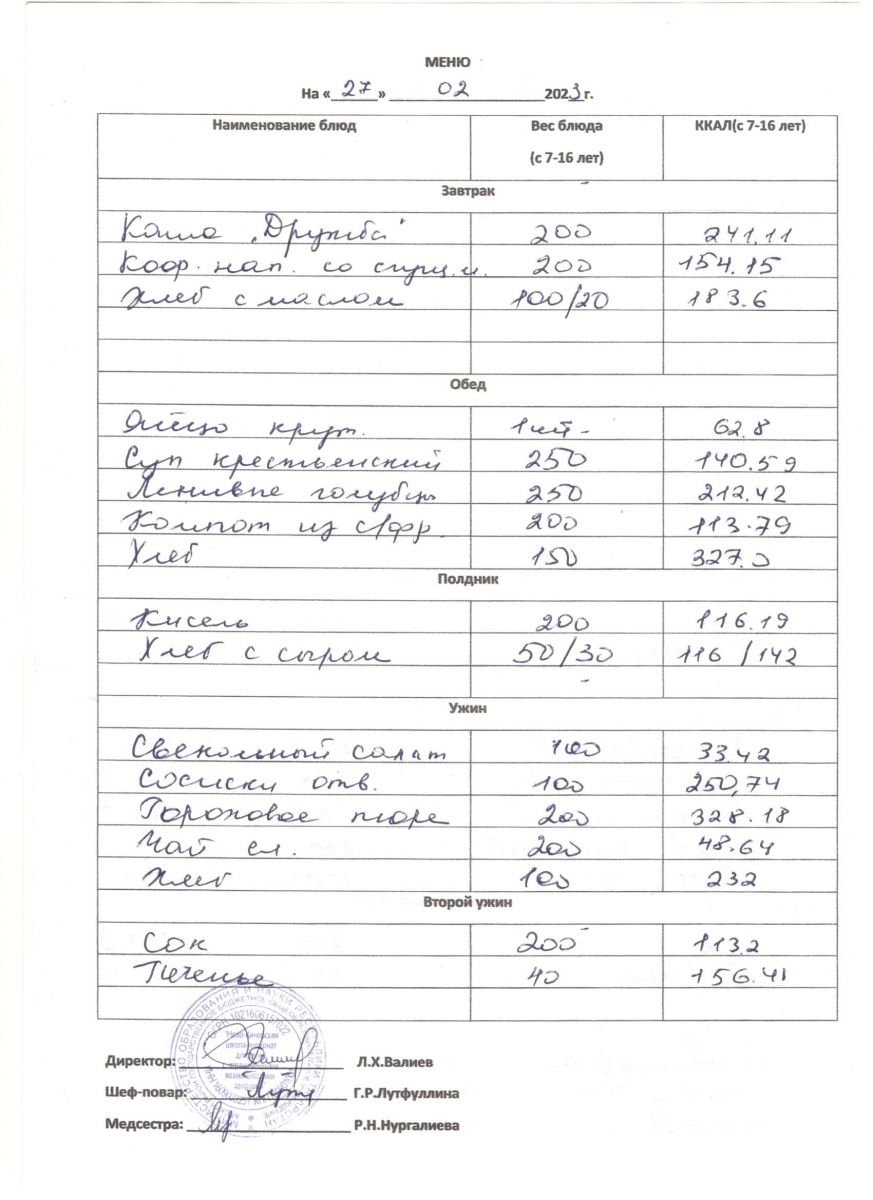 МЕНЮ
На « 27 » 02 2023 г.
Наименование блюд Вес блюда (с 7-16 лет) ККАЛ(с 7-16 лет)
Завтрак
Каша „Дружба" 200 241.11
Кофр. нап. со сгущ. 200 154.15
Хлеб с маслом 100/20 183.6
Обед
Яйцо крут. 1шт- 62.8
Суп крестьенский 250 140.59
Ленивые голубцы 250 212.42
Компот из с/фр. 200 113.79
Хлеб 150 327.0
Полдник
Кисель 200 116.19
Хлеб с сыром 50/30 116 /142
Ужин
Свекольный салат 100 33.42
Сосиски отв. 100 250,74
Гороховое пюре 200 328.18
Чай сл. 200 48.64
Хлеб 100 232
Второй ужин
Сок 200 113.2
Печенье 40 156.41
Директор: Л.Х.Валиев
Шеф-повар: Г.Р.Лутфуллина
Медсестра: Р.Н.Нургалиева